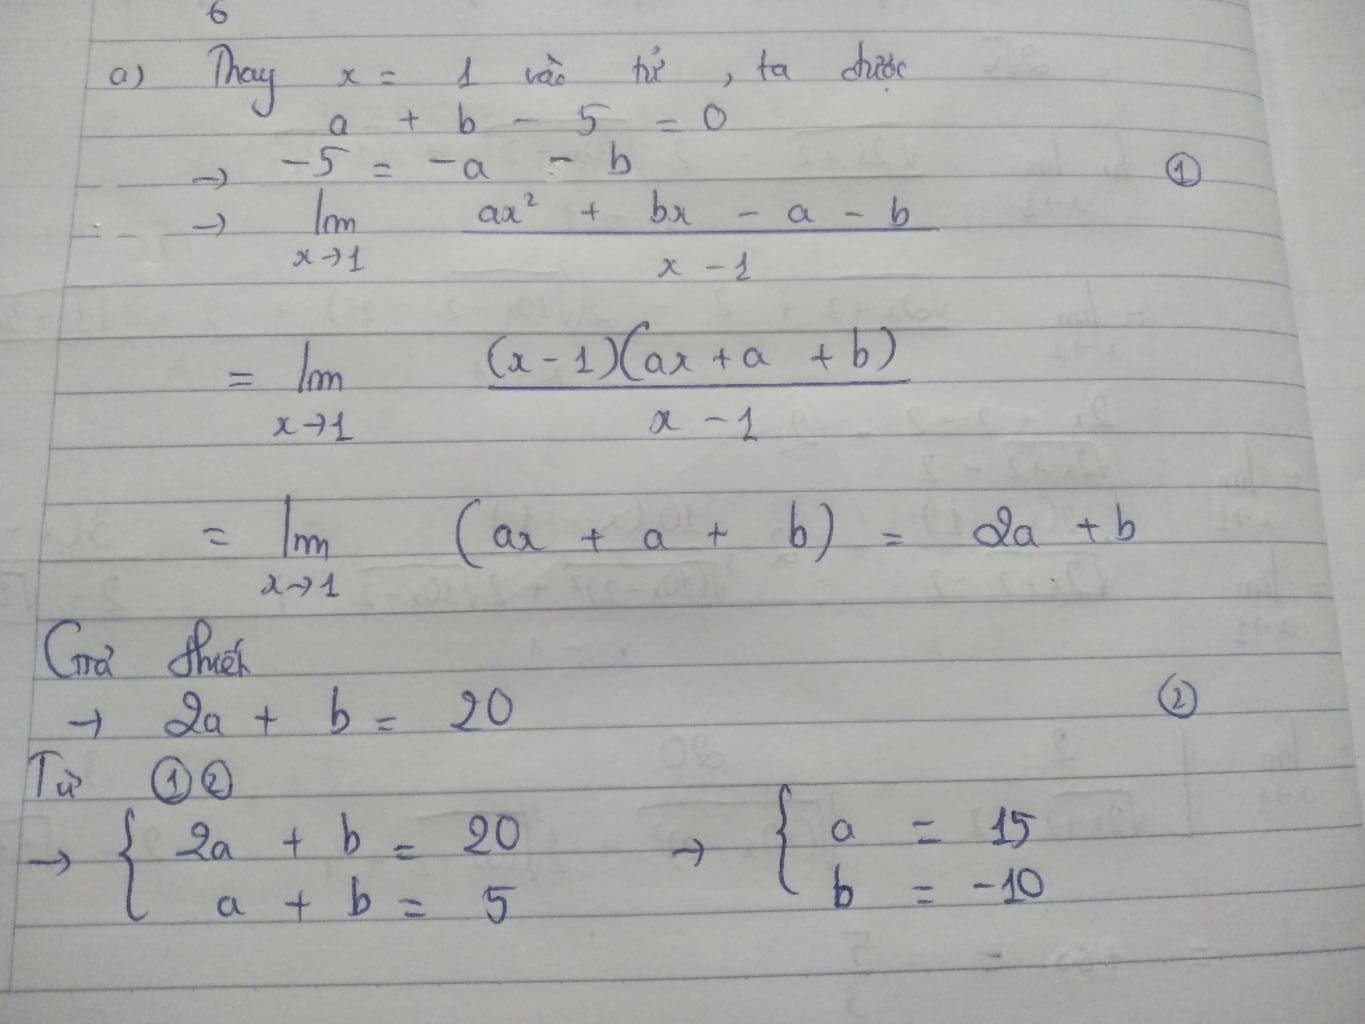 6
a) Thay x = 1 vào tử, ta được
a + b - 5 = 0
→ -5 = -a - b ①
→ lim ax² + bx - a - b
x→1 x - 1
= lim (x - 1)(ax + a + b)
x→1 x - 1
= lim (ax + a + b) = 2a + b
x→1
Giả thiết
→ 2a + b = 20 ②
Từ ① ②
→ { 2a + b = 20 → { a = 15
a + b = 5 b = -10